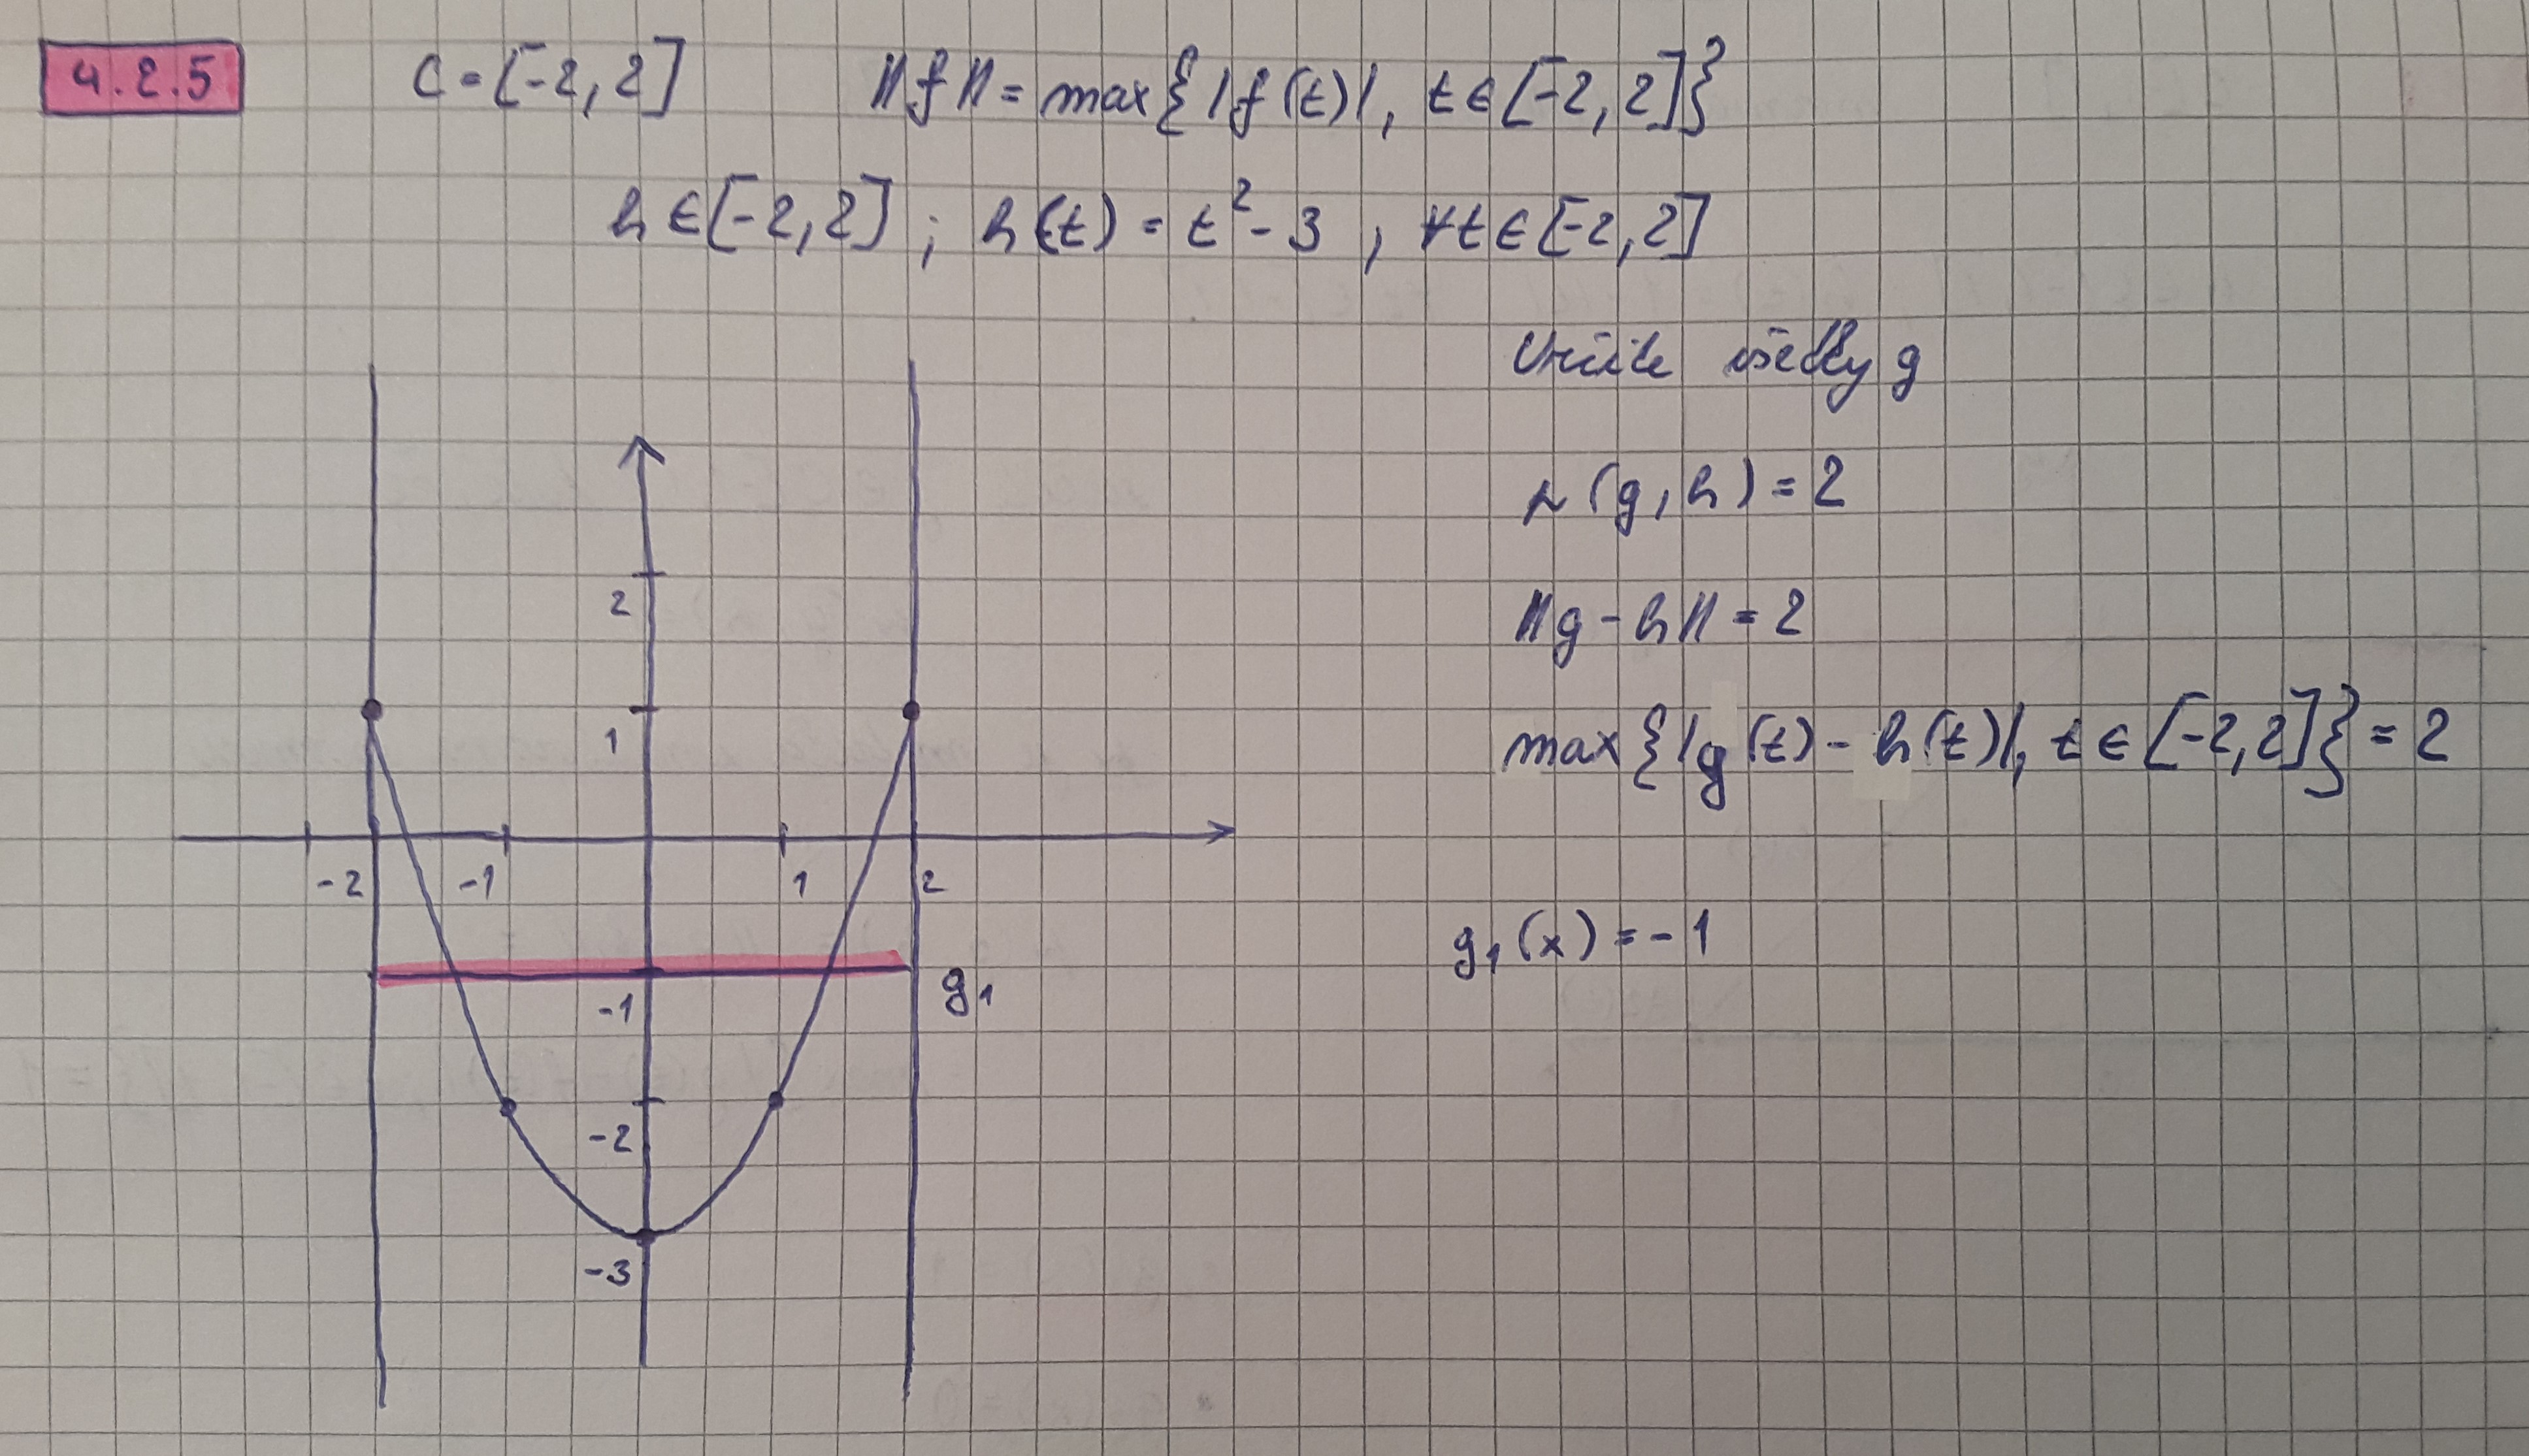 4.2.5 C=[-2,2] ||f||=max{|f(t)|, t∈[-2,2]}
h∈[-2,2]; h(t)=t²-3, ∀t∈[-2,2]
Určite všetky g
r(g,h)=2
||g-h||=2
max{|g(t)-h(t)|, t∈[-2,2]}=2
g₁(x)=-1
2
1
-2 -1 1 2
-1 g₁
-2
-3